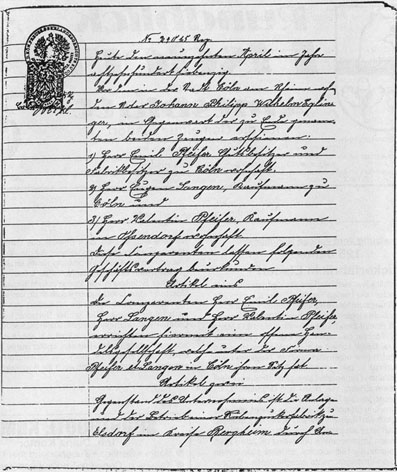 No 2 1165 Reg.
Heute den neunzehnten April im Jahr
achtzehnhundert siebenzig.
Vor dem in der Stadt Cöln am Rhein
den Notar Johann Philipp Wilhelm
in Gegenwart der zu Ende genann-
ten beiden Zeugen erschienen:
1) Herr Emil Pfeifer, Gutsbesitzer und
Fabrikbesitzer zu Köln wohnhaft.
2) Herr Eugen Langen, Kaufmann zu
Cöln und
3) Herr Valentin Pfeifer, Kaufmann
in Ossendorf wohnhaft
Diese Comparenten lassen folgenden
Gesellschaftsvertrag beurkunden
Artikel eins
Die Comparenten Herr Emil Pfeifer,
Herr Langen und Herr Valentin Pfeifer,
errichten hiermit eine offene Han-
delsgesellschaft, welche unter der Firma
Pfeifer & Langen in Cöln ihren Sitz hat
Artikel zwei
Gegenstand des Unternehmens ist die Anlage
und der Betrieb einer Rübenzuckerfabrik zu
Elsdorf im Kreise Bergheim durch